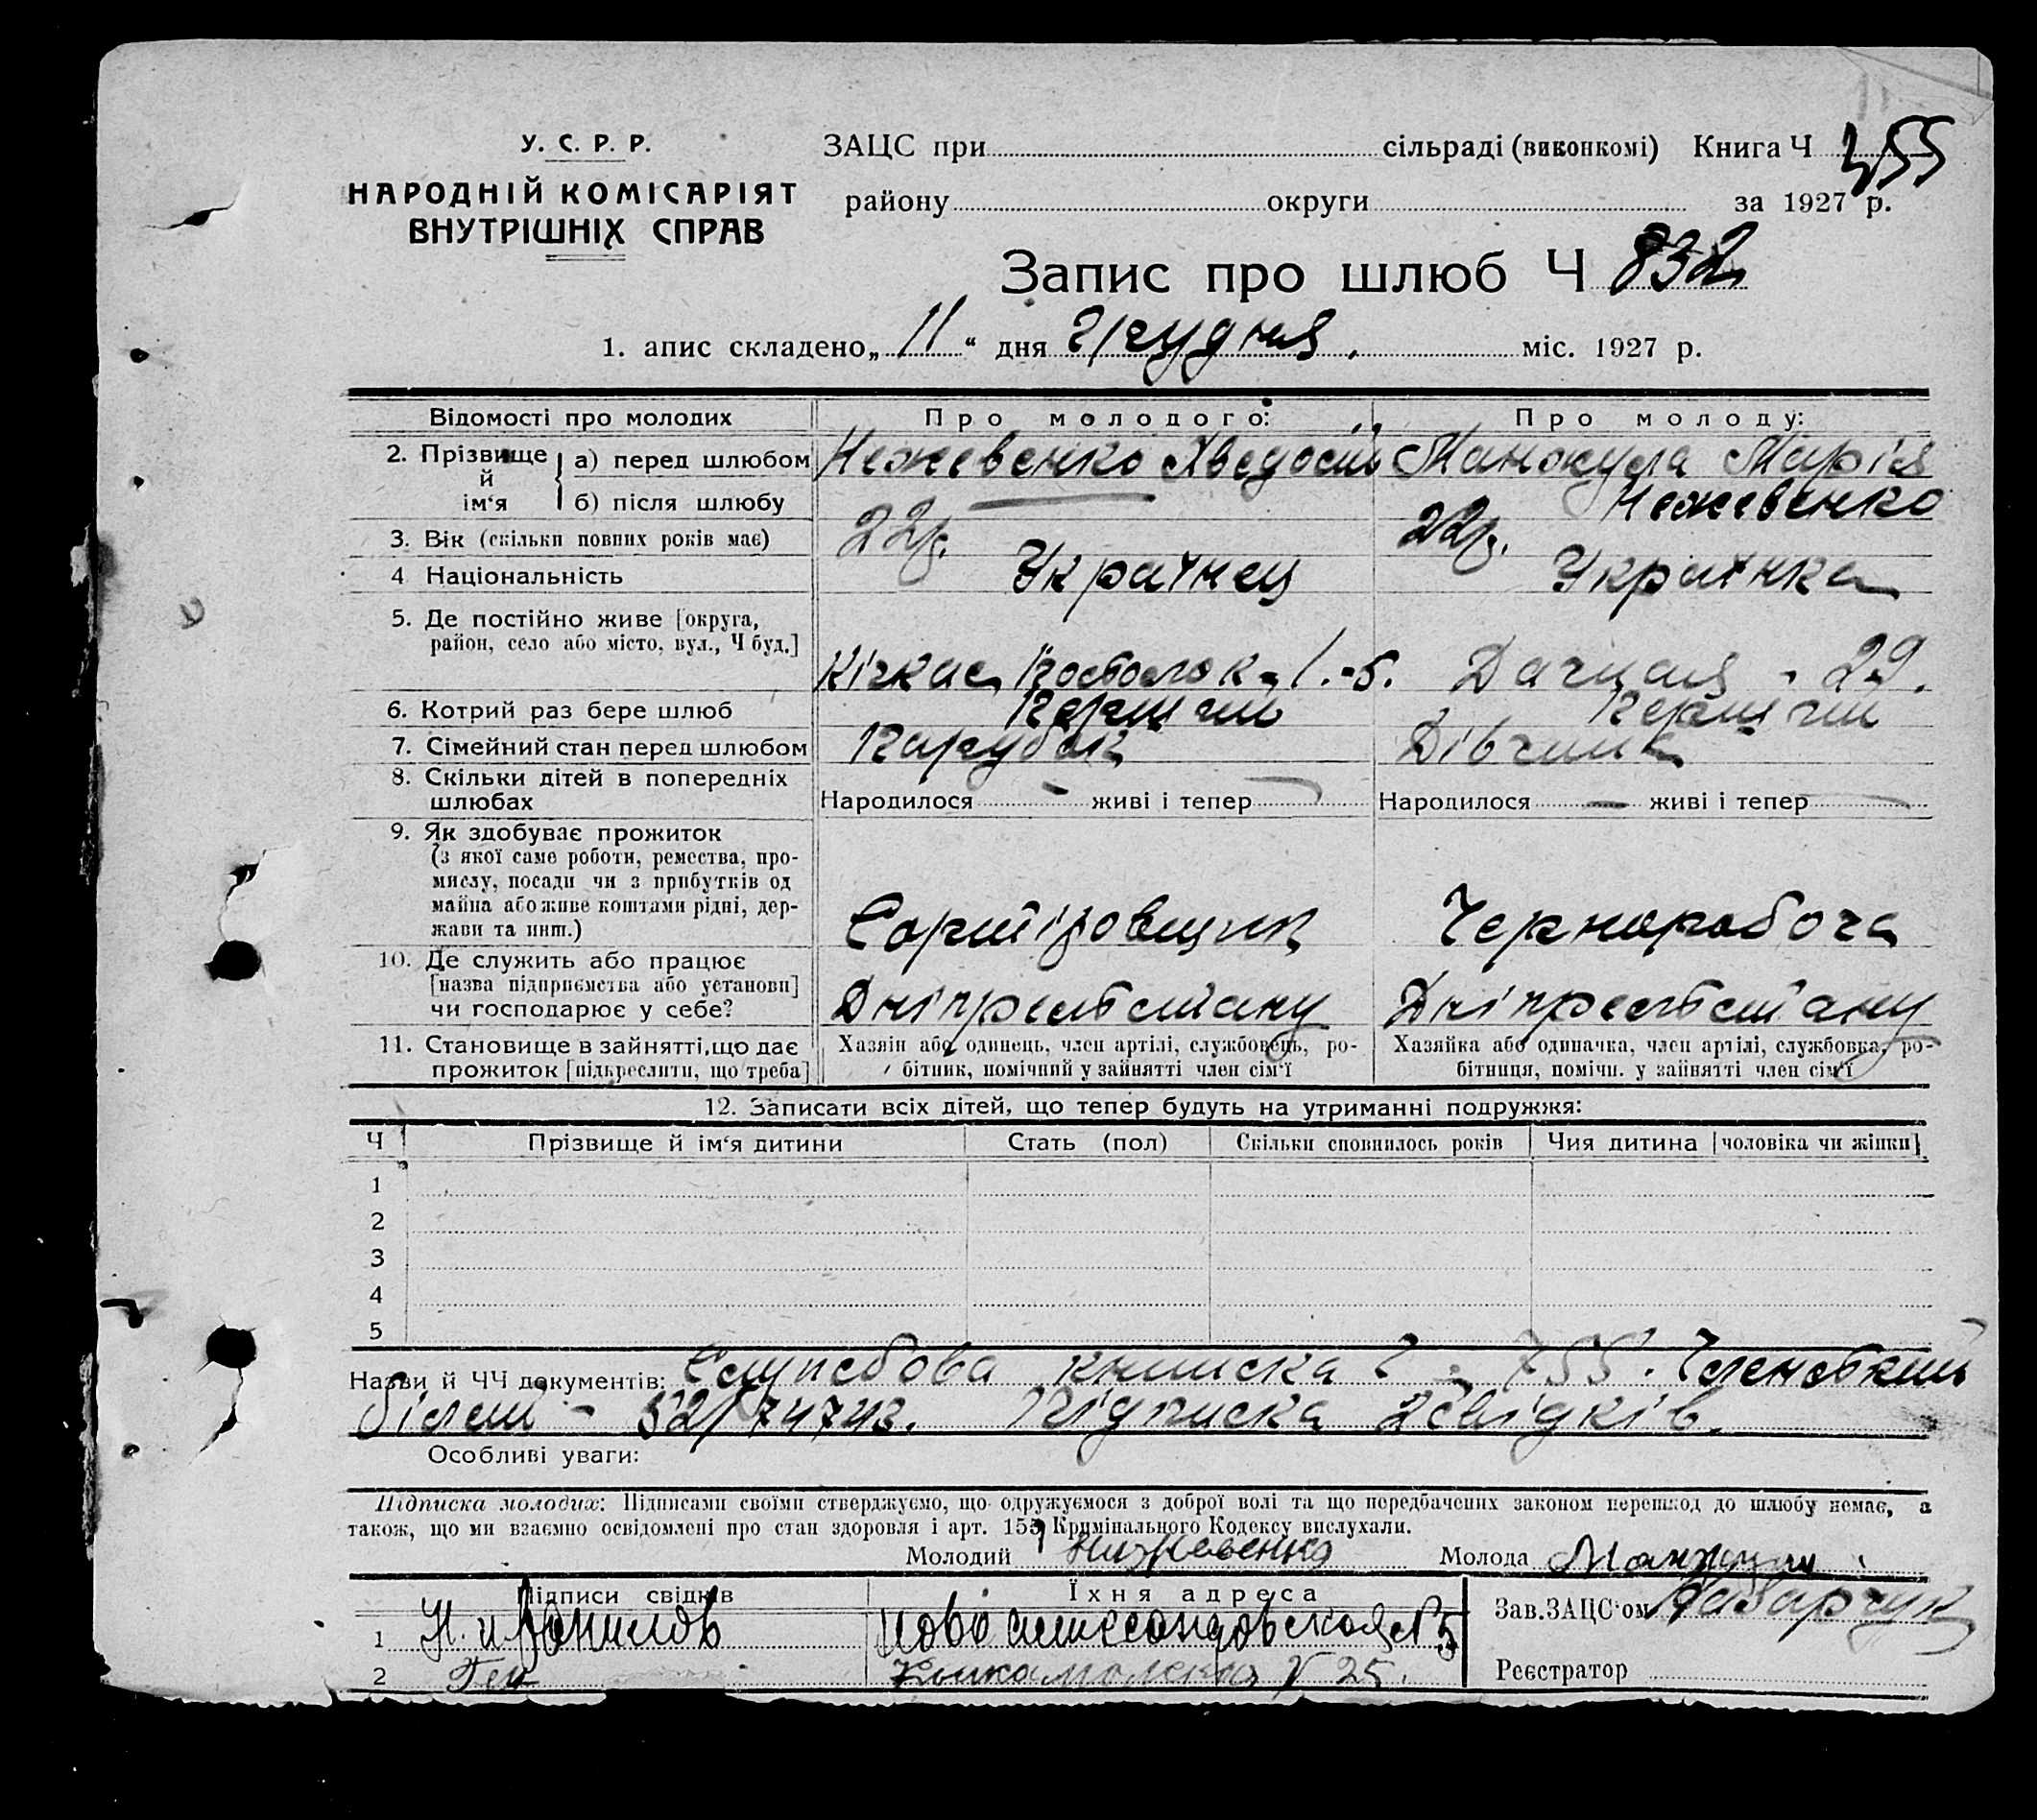 У. С. Р. Р.
НАРОДНІЙ КОМІСАРІЯТ
ВНУТРІШНІХ СПРАВ
ЗАЦС при сільраді (виконкомі) Книга Ч 455
району округи за 1927 р.
Запис про шлюб Ч 832
1. апис складено „ 11 “ дня грудня міс. 1927 р.
Відомості про молодих Про молодого: Про молоду:
2. Прізвище й ім‘я а) перед шлюбом Нежевенко Хведосій Манжула Марія
б) після шлюбу Нежевенко
3. Вік (скільки повних років має) 22 р. 22 р.
4 Національність Українец Українка
5. Де постійно живе [округа,
район, село або місто, вул., Ч буд.] Кічкас 1.-5. Дачная - 29.
6. Котрий раз бере шлюб Перший Перший
7. Сімейний стан перед шлюбом Парубок Дівчина
8. Скільки дітей в попередніх
шлюбах Народилося — живі і тепер — Народилося — живі і тепер —
9. Як здобуває прожиток
(з якої саме роботи, ремества, про-
мислу, посади чи з прибутків од
майна або живе коштами рідні, дер-
жави та инш.) Сортіровщик Чернорабоча
10. Де служить або працює
[назва підприємства або установи]
чи господарює у себе? Дніпрельстану Дніпрельстану
11. Становище в зайнятті, що дає Хазяін або одинець, член артілі, службовець, ро- Хазяйка або одиначка, член артілі, службовка, ро-
прожиток [підкреслити, що треба] бітник, помічний у зайнятті член сім‘ї бітниця, помічн. у зайнятті член сім‘ї
12. Записати всіх дітей, що тепер будуть на утриманні подружжя:
Ч Прізвище й ім‘я дитини Стать (пол) Скільки сповнилось років Чия дитина [чоловіка чи жінки]
1
2
3
4
5
Назви й ЧЧ документів: Службова книжка Ч - 755. Членський
білет - 52/74743. Підписка 2 свідків.
Особливі уваги:
Підписка молодих: Підписами своїми стверджуємо, що одружуємося з доброї волі та що передбачених законом перешкод до шлюбу немає, а
також, що ми взаємно освідомлені про стан здоровля і арт. 155 Кримінального Кодексу вислухали.
Молодий Нижевенко Молода Манжула
Підписи свідків Їхня адреса Зав.ЗАЦС‘ом
1 Н. и Данилов №5
2 Ген № 25. Реєстратор